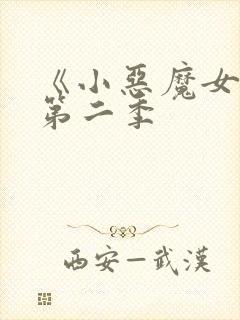 《小惡魔女
第二季
西安—武漢